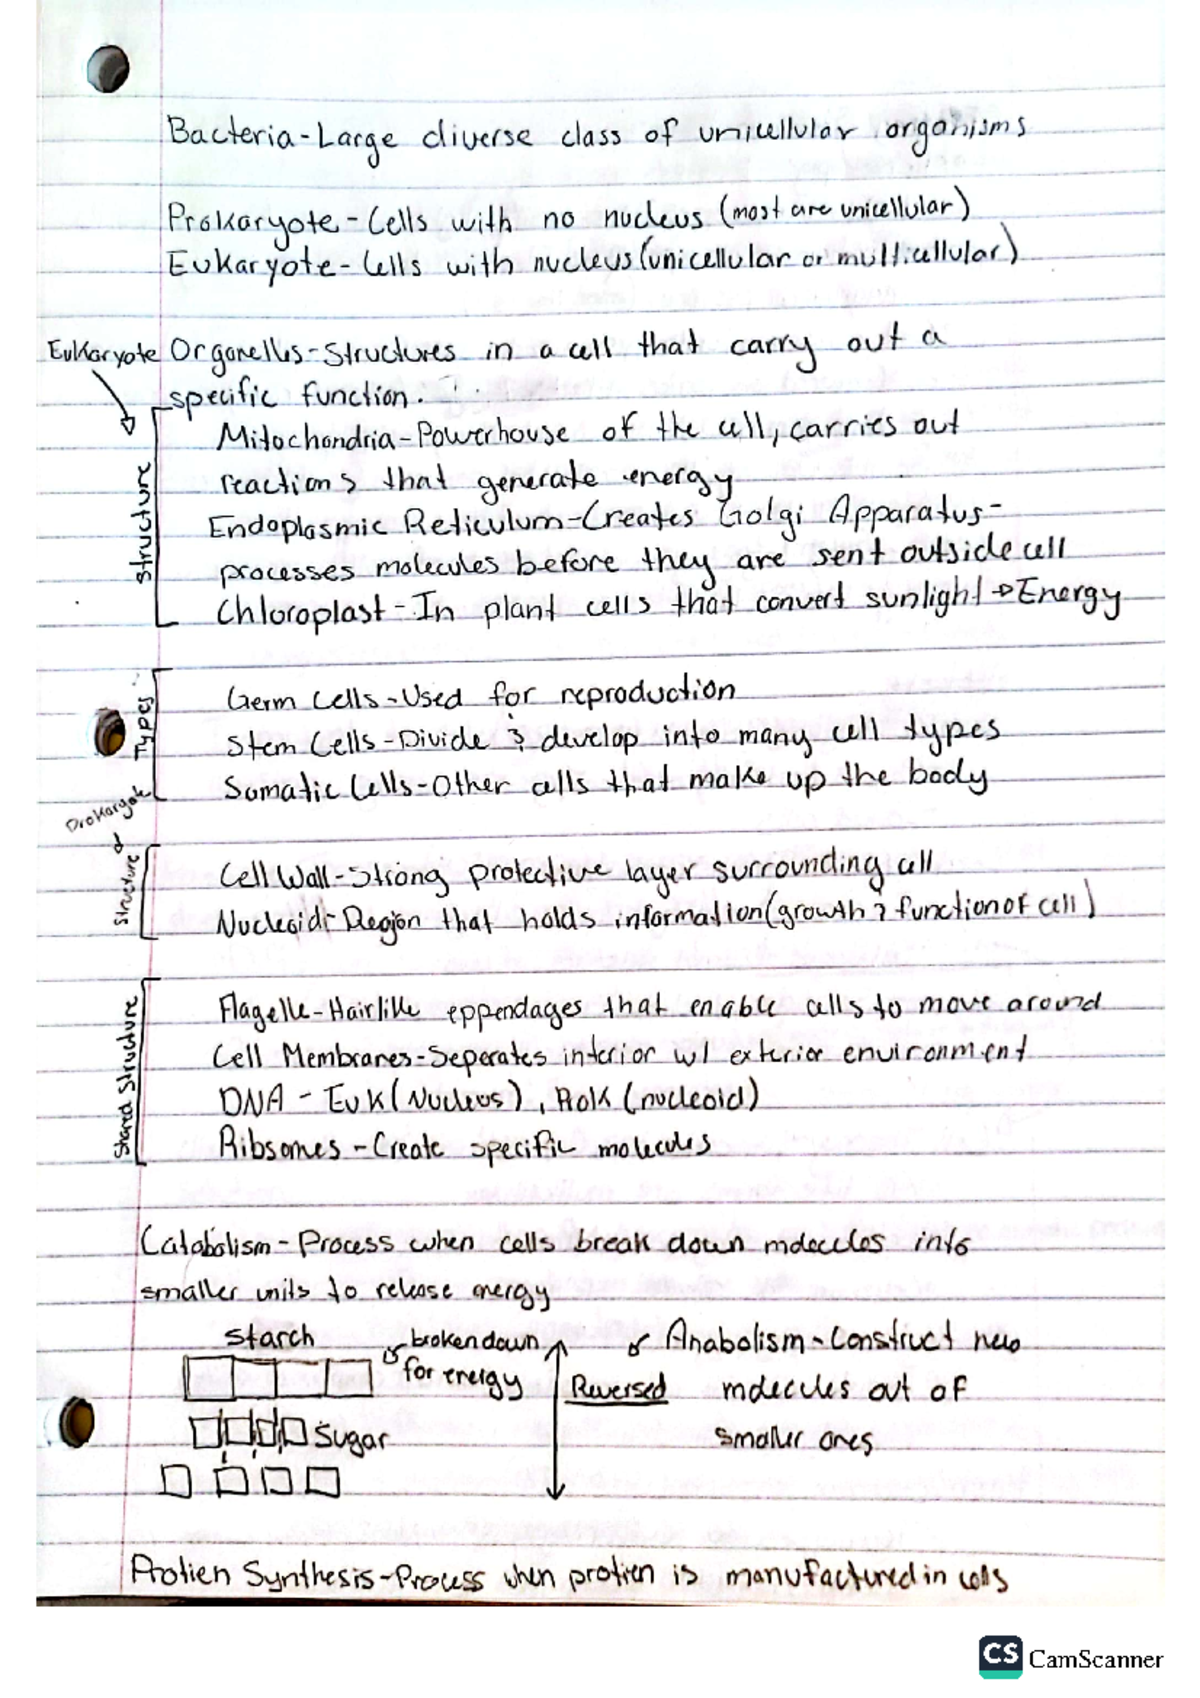 Bacteria-Large diverse class of unicellular organisms
Prokaryote-Cells with no nucleus (most are unicellular)
Eukaryote-Cells with nucleus (unicellular or multicellular)
Eukaryote Organelles-Structures in a cell that carry out a
specific function.
Structure
Mitochondria-Powerhouse of the cell, carries out
reactions that generate energy
Endoplasmic Reticulum-Creates Golgi Apparatus-
processes molecules before they are sent outside cell
Chloroplast-In plant cells that convert sunlight → Energy
Types
Germ Cells-Used for reproduction
Stem Cells-Divide & develop into many cell types
Somatic Cells-Other cells that make up the body
Prokaryote
Structure
Cell Wall-Strong protective layer surrounding cell
Nucleoid-Region that holds information (growth & function of cell)
Shared Structure
Flagelle-Hairlike eppendages that enable cells to move around
Cell Membranes-Seperates interior w/ exterior environment
DNA - Euk (Nucleus), Prok (nucleoid)
Ribsomes - Create specific molecules
Catabolism-Process when cells break down molecules into
smaller units to release energy
Starch
broken down
for energy
Reversed
Anabolism-Construct new
molecules out of
smaller ones
Sugar
Protien Synthesis-Process when protien is manufactured in cells
CS CamScanner